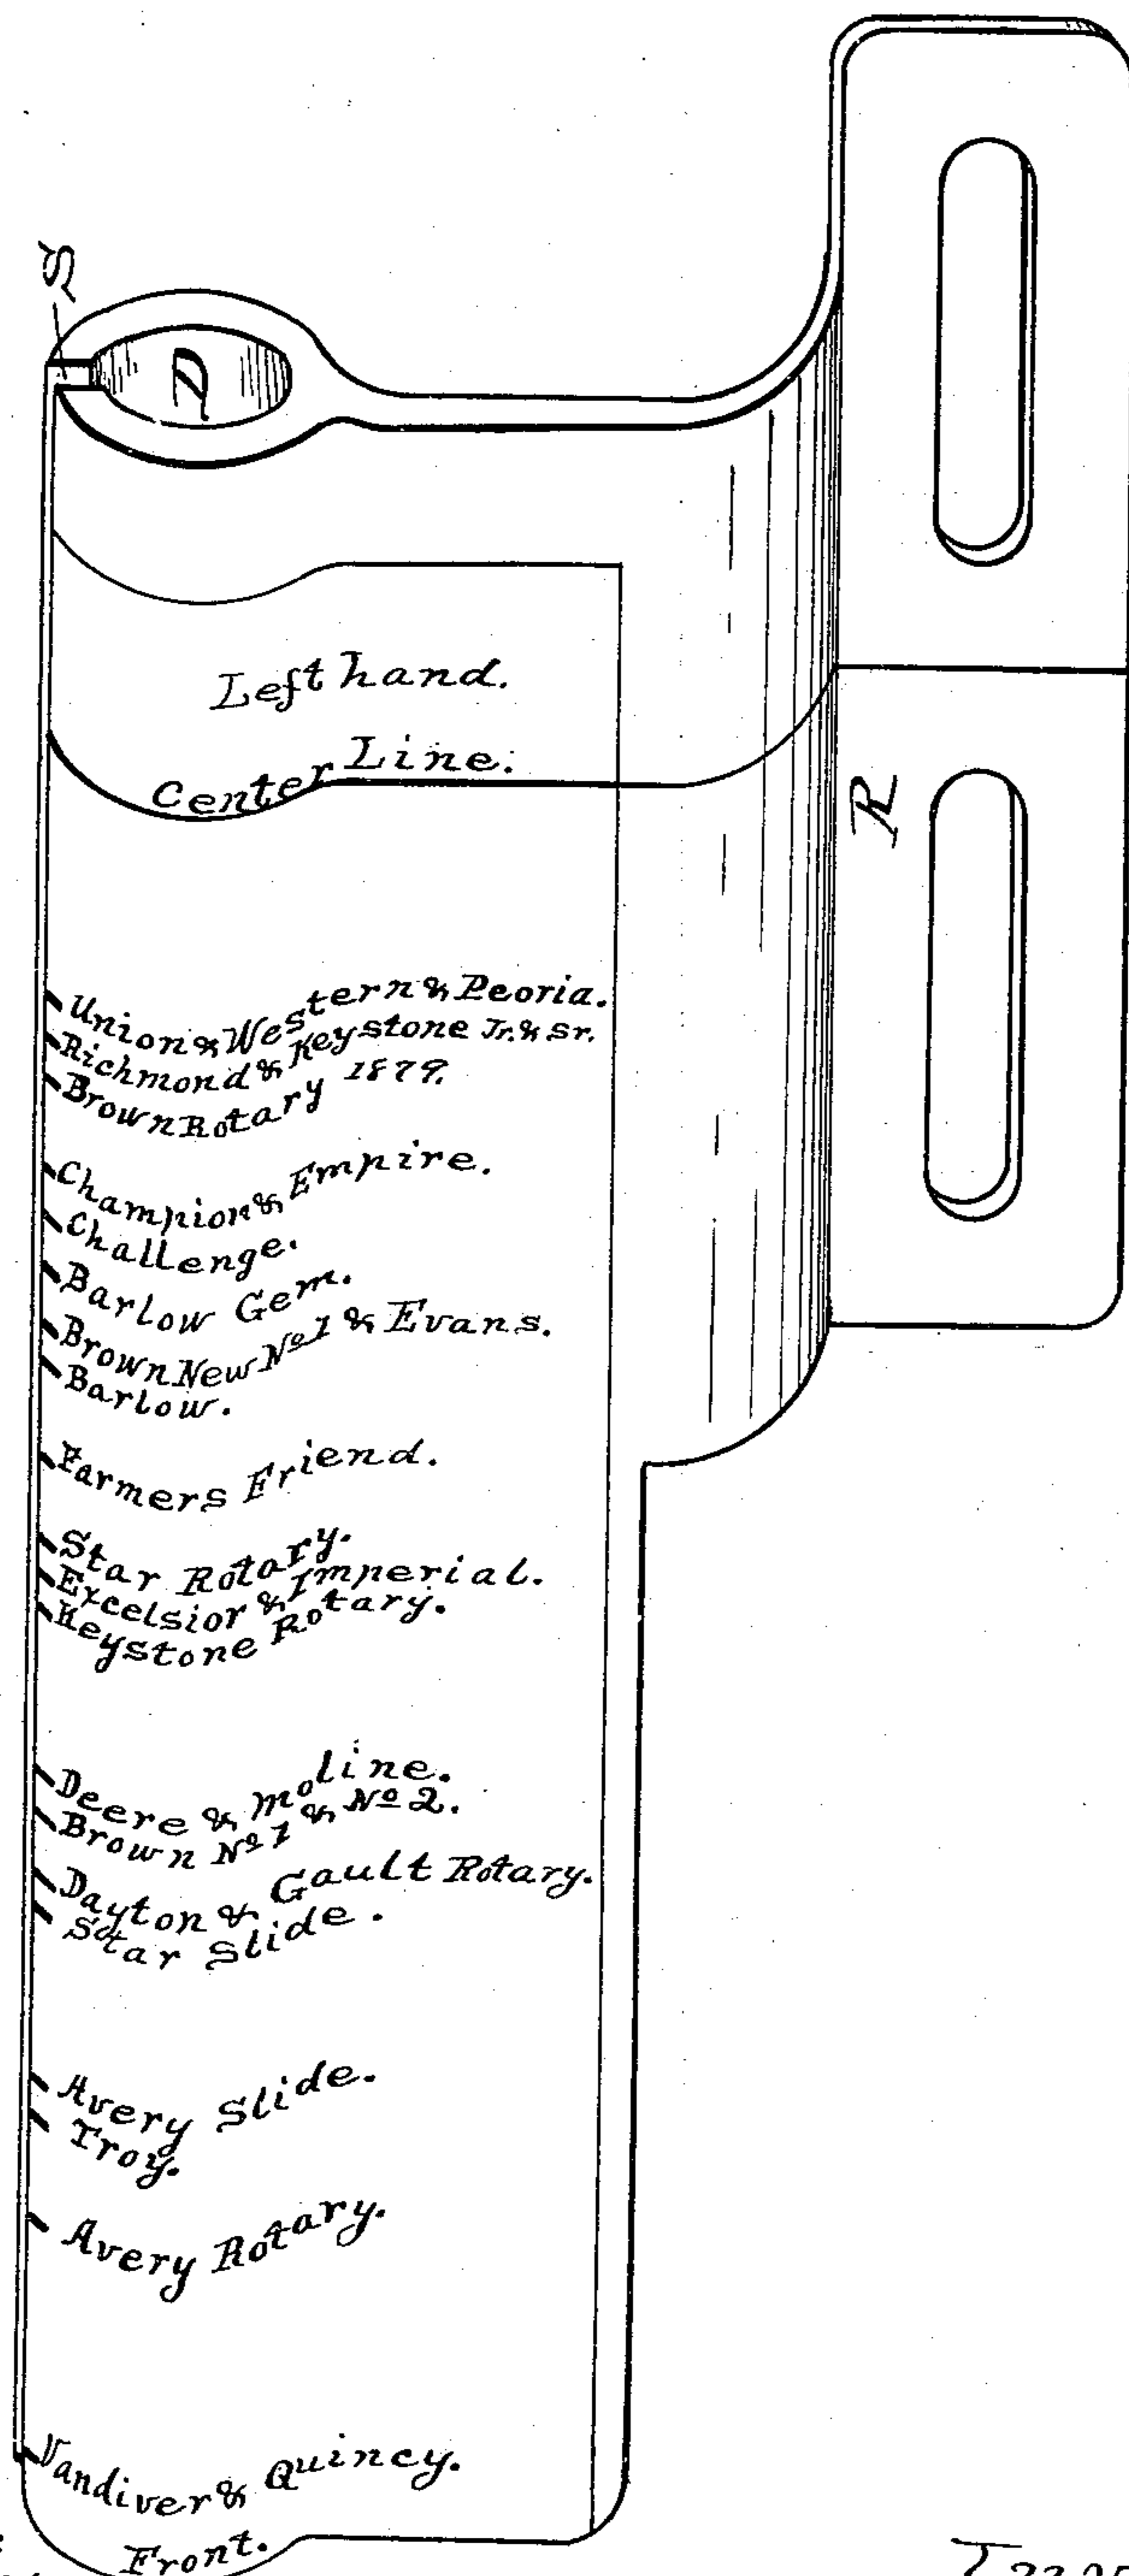 S
D
Left hand.
Center Line.
R
Union & Western & Peoria.
Richmond & Keystone Jr. & Sr.
Brown Rotary 1879.
Champion & Empire.
Challenge.
Barlow Gem.
Brown New No 1 & Evans.
Barlow.
Farmers Friend.
Star Rotary.
Excelsior & Imperial.
Keystone Rotary.
Deere & Moline.
Brown No 1 & No 2.
Dayton & Gault Rotary.
Star Slide.
Avery Slide.
Troy.
Avery Rotary.
Vandiver & Quincy.
Front.